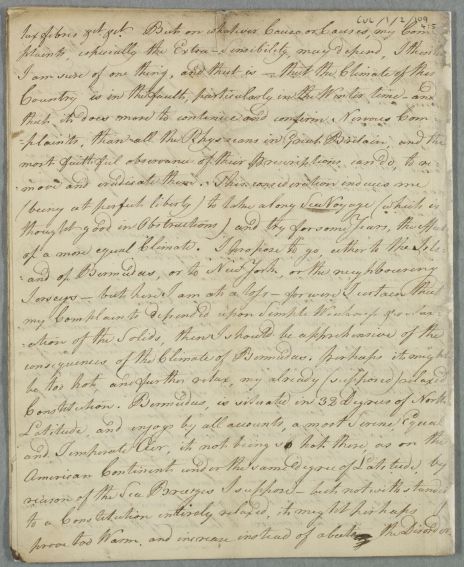 CUL/1/2/109
lax fibris &c &c. But on whatever Cause or Causes my Com-
plaints, especially the Extra-sensibility may depend, I think
I am sure of one thing, and that is — that the Climate of this
Country is in the fault, particularly in the Winter time — and
that it does more to continue and confirm Nervous Com-
-plaints, than all the Physicians in Great Britain, and the
most faithful observance of their Prescriptions can do to re-
move and eradicate them. This consideration induces me
(being at perfect liberty) to take a long Sea Voyage, (which is
thought good in Obstructions) and try for some Years, the effect
of a more equal Climate. I propose to go, either to the Isl-
-and of Bermudas, or to New York, or the neighbouring
Jerseys — but here I am at a loss — for were I certain that
my Complaints depended upon simple Weakness &
-ation of the Solids, then I should be apprehensive of the
consequences of the Climate of Bermudas. Perhaps it might
be too hot, and further relax, my already (supposed) relaxed
Constitution. Bermudas, is situated in 32 degrees of North
Latitude, and enjoys by all accounts, a most Serene, Equal
and Temperate Air, it not being so hot there as on the
American Continent under the same degree of Latitude, by
reason of the Sea Breezes I suppose — but notwithstand
to a Constitution entirely relaxed, it might perhaps
prove too Warm, and increase instead of abate the Disorder